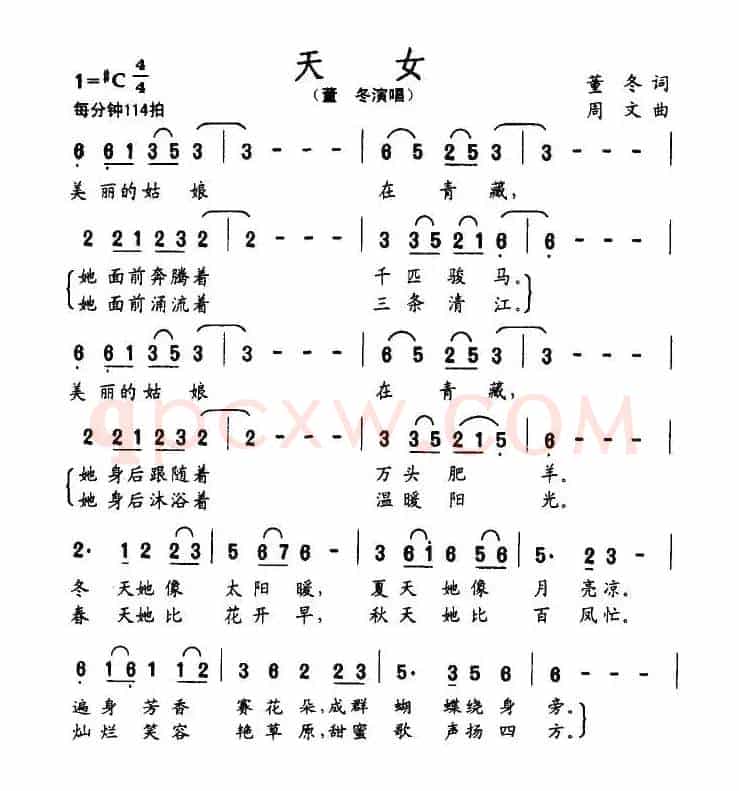 天 女
1=#C 4/4
（董 冬演唱）
董 冬词
每分钟114拍
周 文曲
6 6 1 3 5 3 | 3 - - - | 6 5 2 5 3 | 3 - - - |
美 丽的姑 娘 在 青 藏，
2 2 1 2 3 2 | 2 - - - | 3 3 5 2 1 6 | 6 - - - |
她 面前奔腾着 千 匹 骏 马。
她 面前涌流着 三 条 清 江。
6 6 1 3 5 3 | 3 - - - | 6 5 2 5 3 | 3 - - - |
美 丽的姑 娘 在 青 藏，
qpcxw.COM
2 2 1 2 3 2 | 2 - - - | 3 3 5 2 1 5 | 6 - - - |
她 身后跟随着 万 头 肥 羊。
她 身后沐浴着 温 暖 阳 光。
2· 1 2 2 3 | 5 6 7 6 - | 3 6 i 6 5 6 | 5· 2 3 - |
冬 天她 像 太 阳 暖， 夏 天 她 像 月 亮凉。
春 天她 比 花 开 早， 秋 天 她 比 百 凤忙。
6 1 6 1 1 2 | 3 6 2 2 3 | 5· 3 5 6 | 6 - - - |
遍 身 芳 香 赛 花 朵，成群 蝴 蝶绕 身 旁。
灿 烂 笑 容 艳 草 原，甜蜜 歌 声扬 四 方。